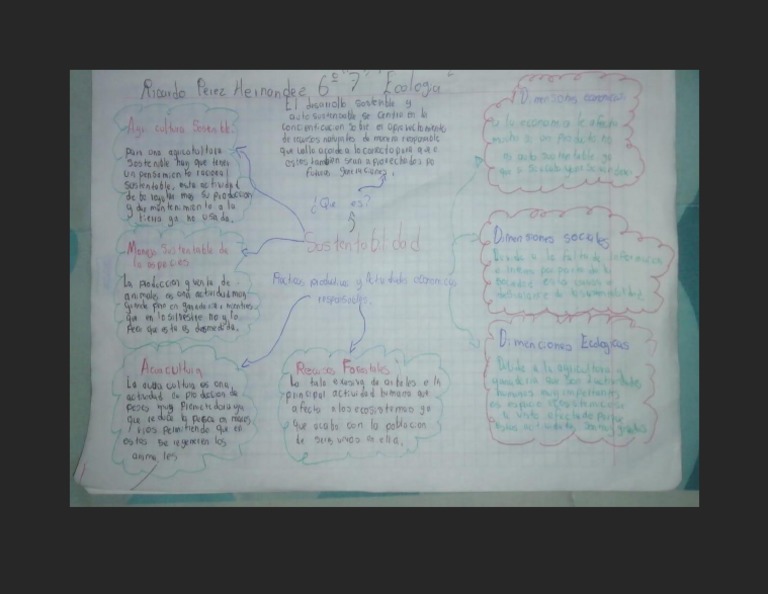 Ricardo Pérez Hernandez 6° "7" Ecologia
El desarollo sostenible y
auto sustentable se centra en la
concientizacion sobre el aprovechamiento
de recursos naturales de manera responsable
que valla acorde a lo correcto para que
estos tambien sean aprovechados por
futuras generaciones.
¿Que es?
Sustentabilidad
Practicas productivas y Actividades economicas
responsables.
Agricultura Sostenible:
para una agricultura
Sostenible hay que tener
un pensamiento racional
Sustentable, esta actividad
debe regular mas su produccion
y dar mantenimiento a la
tierra ya no usada.
Manejo Sustentable de
la especies
La produccion y venta de
animales es una actividad muy
grande pero en ganaderia
que en lo silvestre no
pero que esta es desmedida.
Acuicultura
La acuacultura es una
actividad de produccion de
peses muy prometedora ya
que reduce la pesca en mares
y rios permitiendo que en
estos se regeneren los
animales
Recursos Forestales
La tala exesiva de arboles es la
principal actividad humana que
afecta a los ecosistemas ya
que acaba con la poblacion
de seres vivos en ella.
Dimensiones economicas
a la economia le afecta
mucho a un producto no
ni auto sustentable ya
que
Dimensiones sociales
Devido a la falta de informacion
e interes por parte de la
sociedad
Dimenciones Ecologicas
Debido a la agricultura y
ganaderia que son 2 actividades
humanas muy importantes
el espacio ecosistemico se
a visto afectado porque
estas actividades